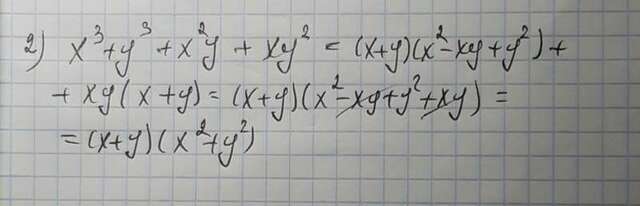 2) x³+y³ + x²y + xy² = (x+y)(x²-xy+y²)+
+ xy(x+y) = (x+y)(x²-xy+y²+xy) =
= (x+y)(x²+y²)